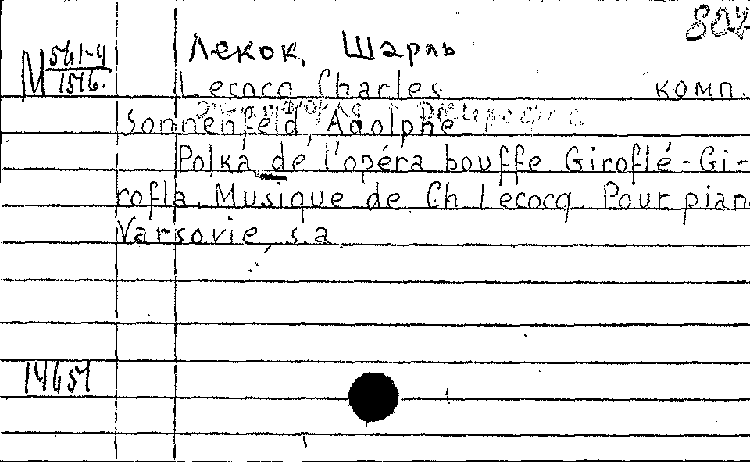 Лекок, Шарль
М 561-4
1516.
Lecocq Charles комп.
Sonnenfeld, Adolphe
Polka de l'opéra bouffe Giroflé-Gi-
rofla. Musique de Ch Lecocq. Pour pian
Varsovie, s.a
14651